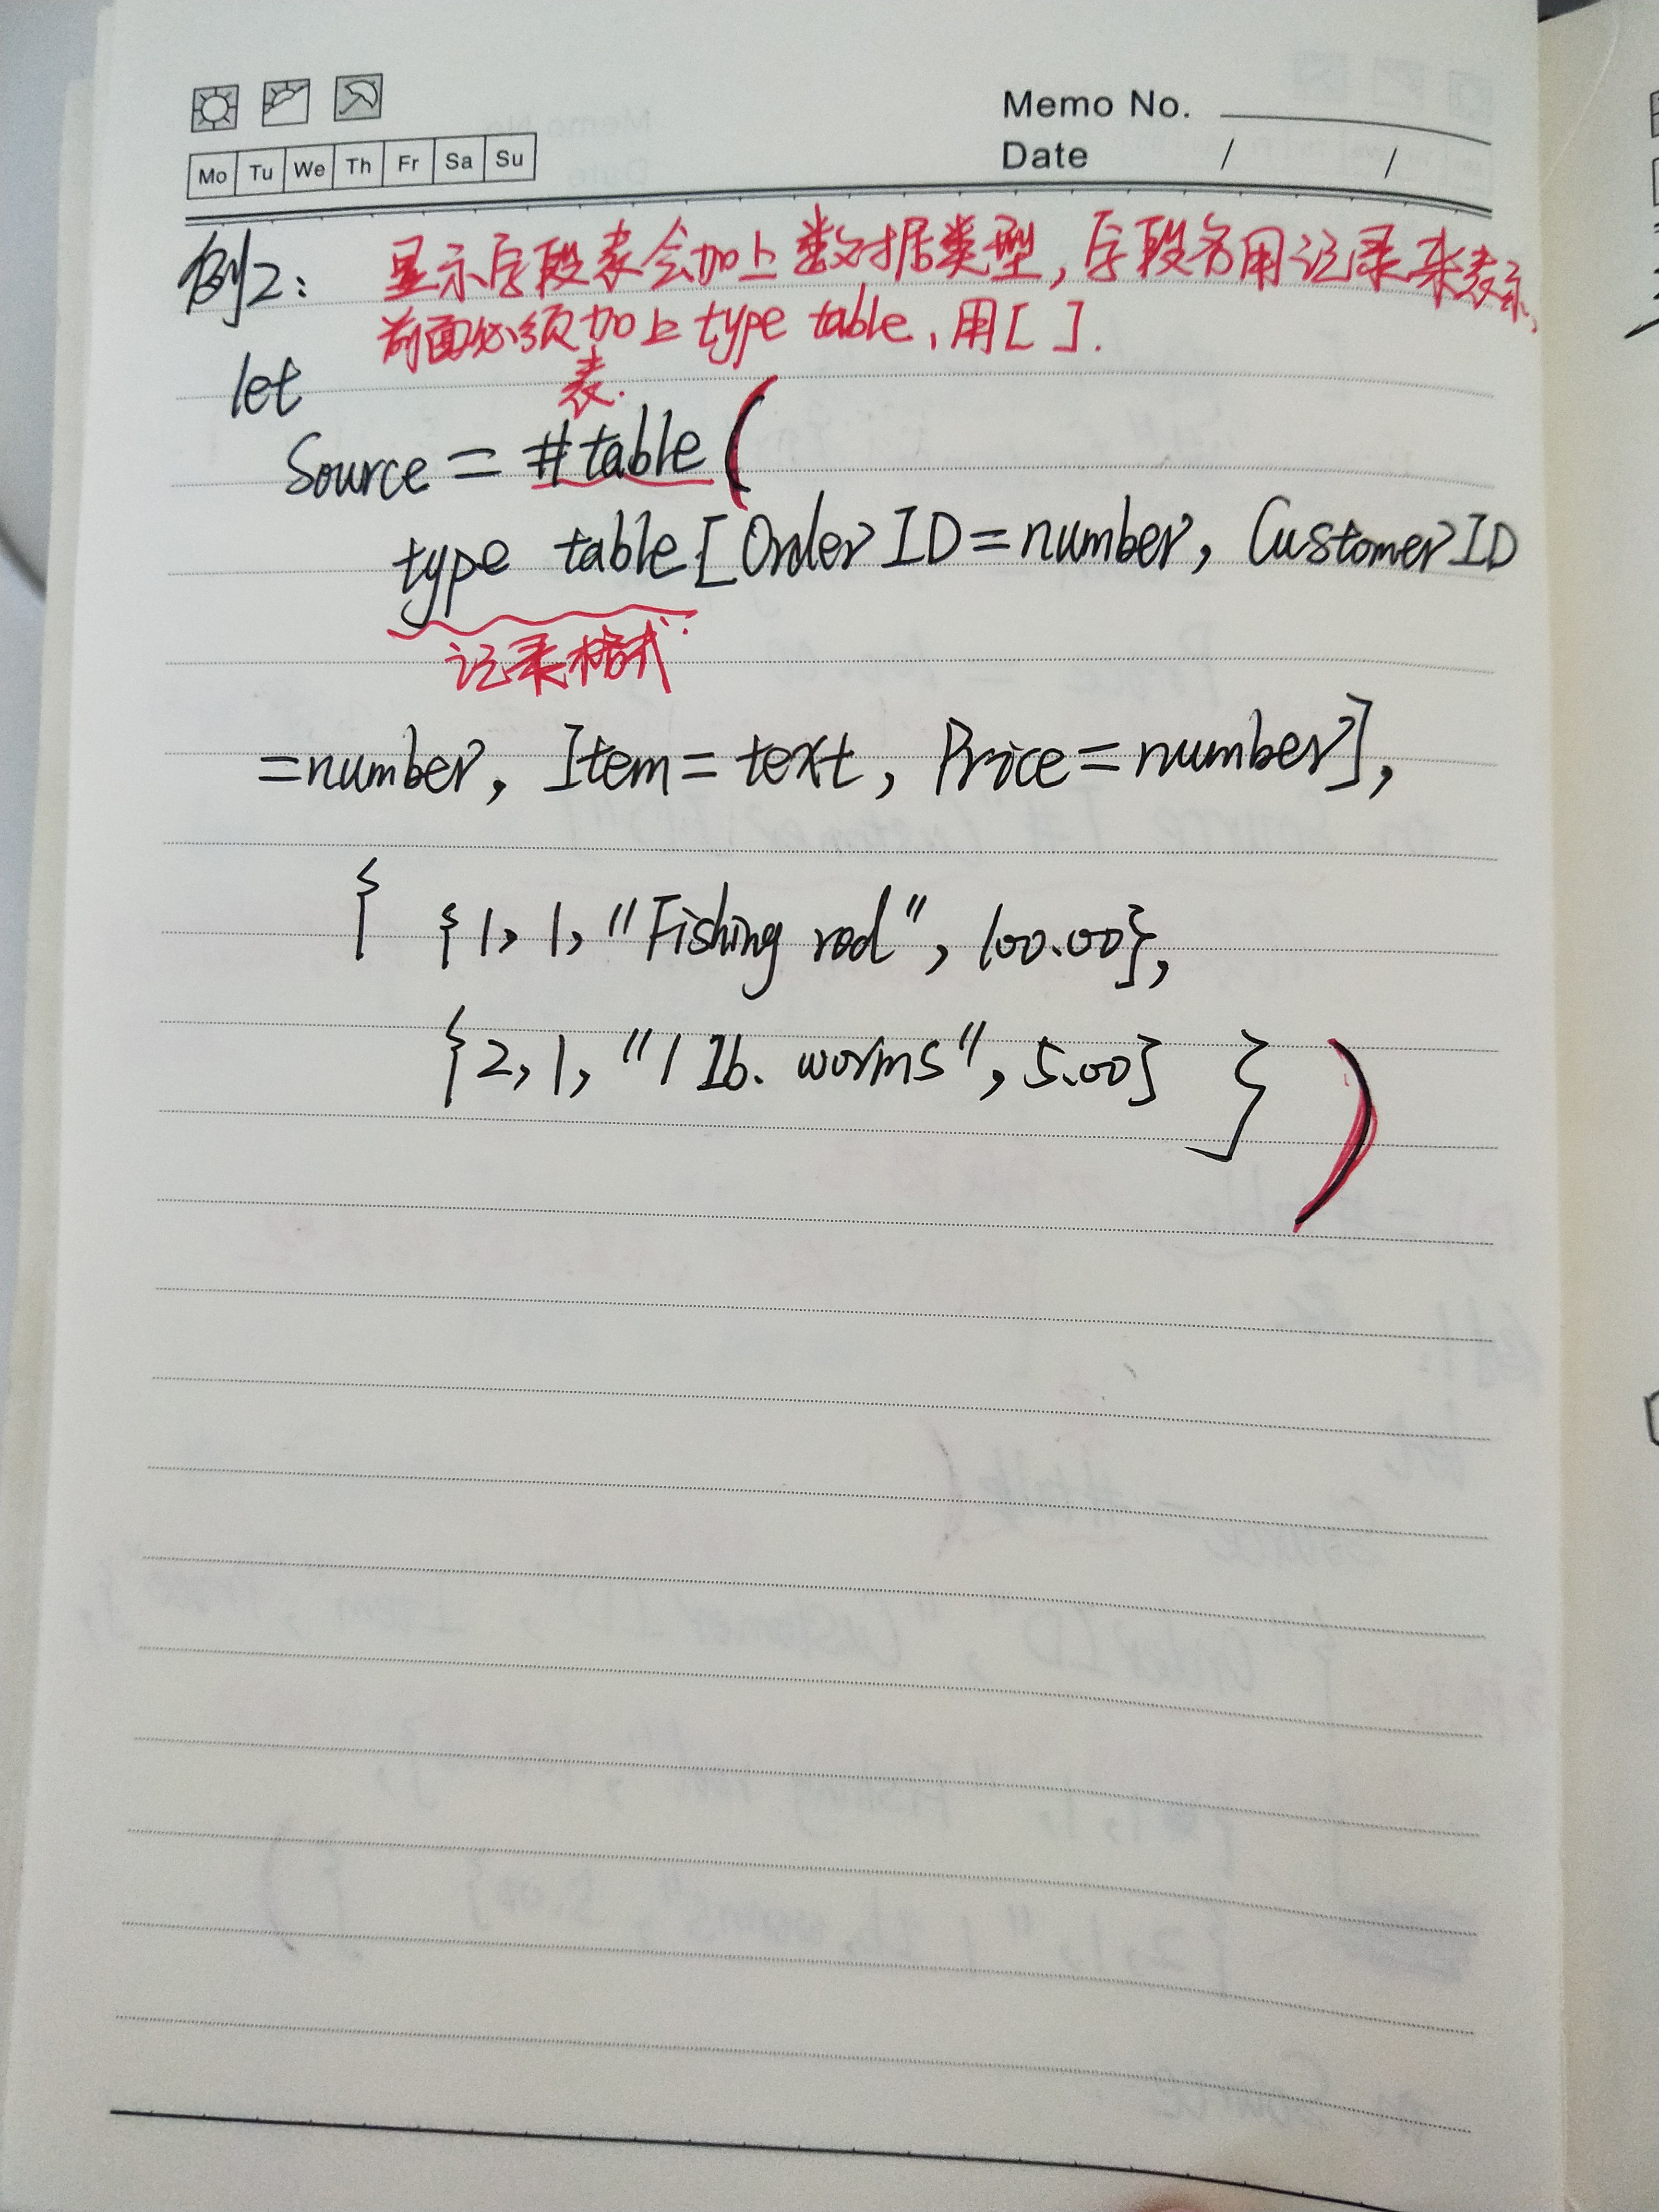 Memo No.
Mo Tu We Th Fr Sa Su
Date / /
例2: 显示字段表会加上数据类型,字段名用记录来表示,
前面必须加上type table,用[ ].
let
表.
Source = #table(
type table[OrderID=number, CustomerID
记录格式
=number, Item=text, Price=number],
{ {1, 1, "Fishing rod", 100.00},
{2, 1, "1 Ib. worms", 5.00} } )